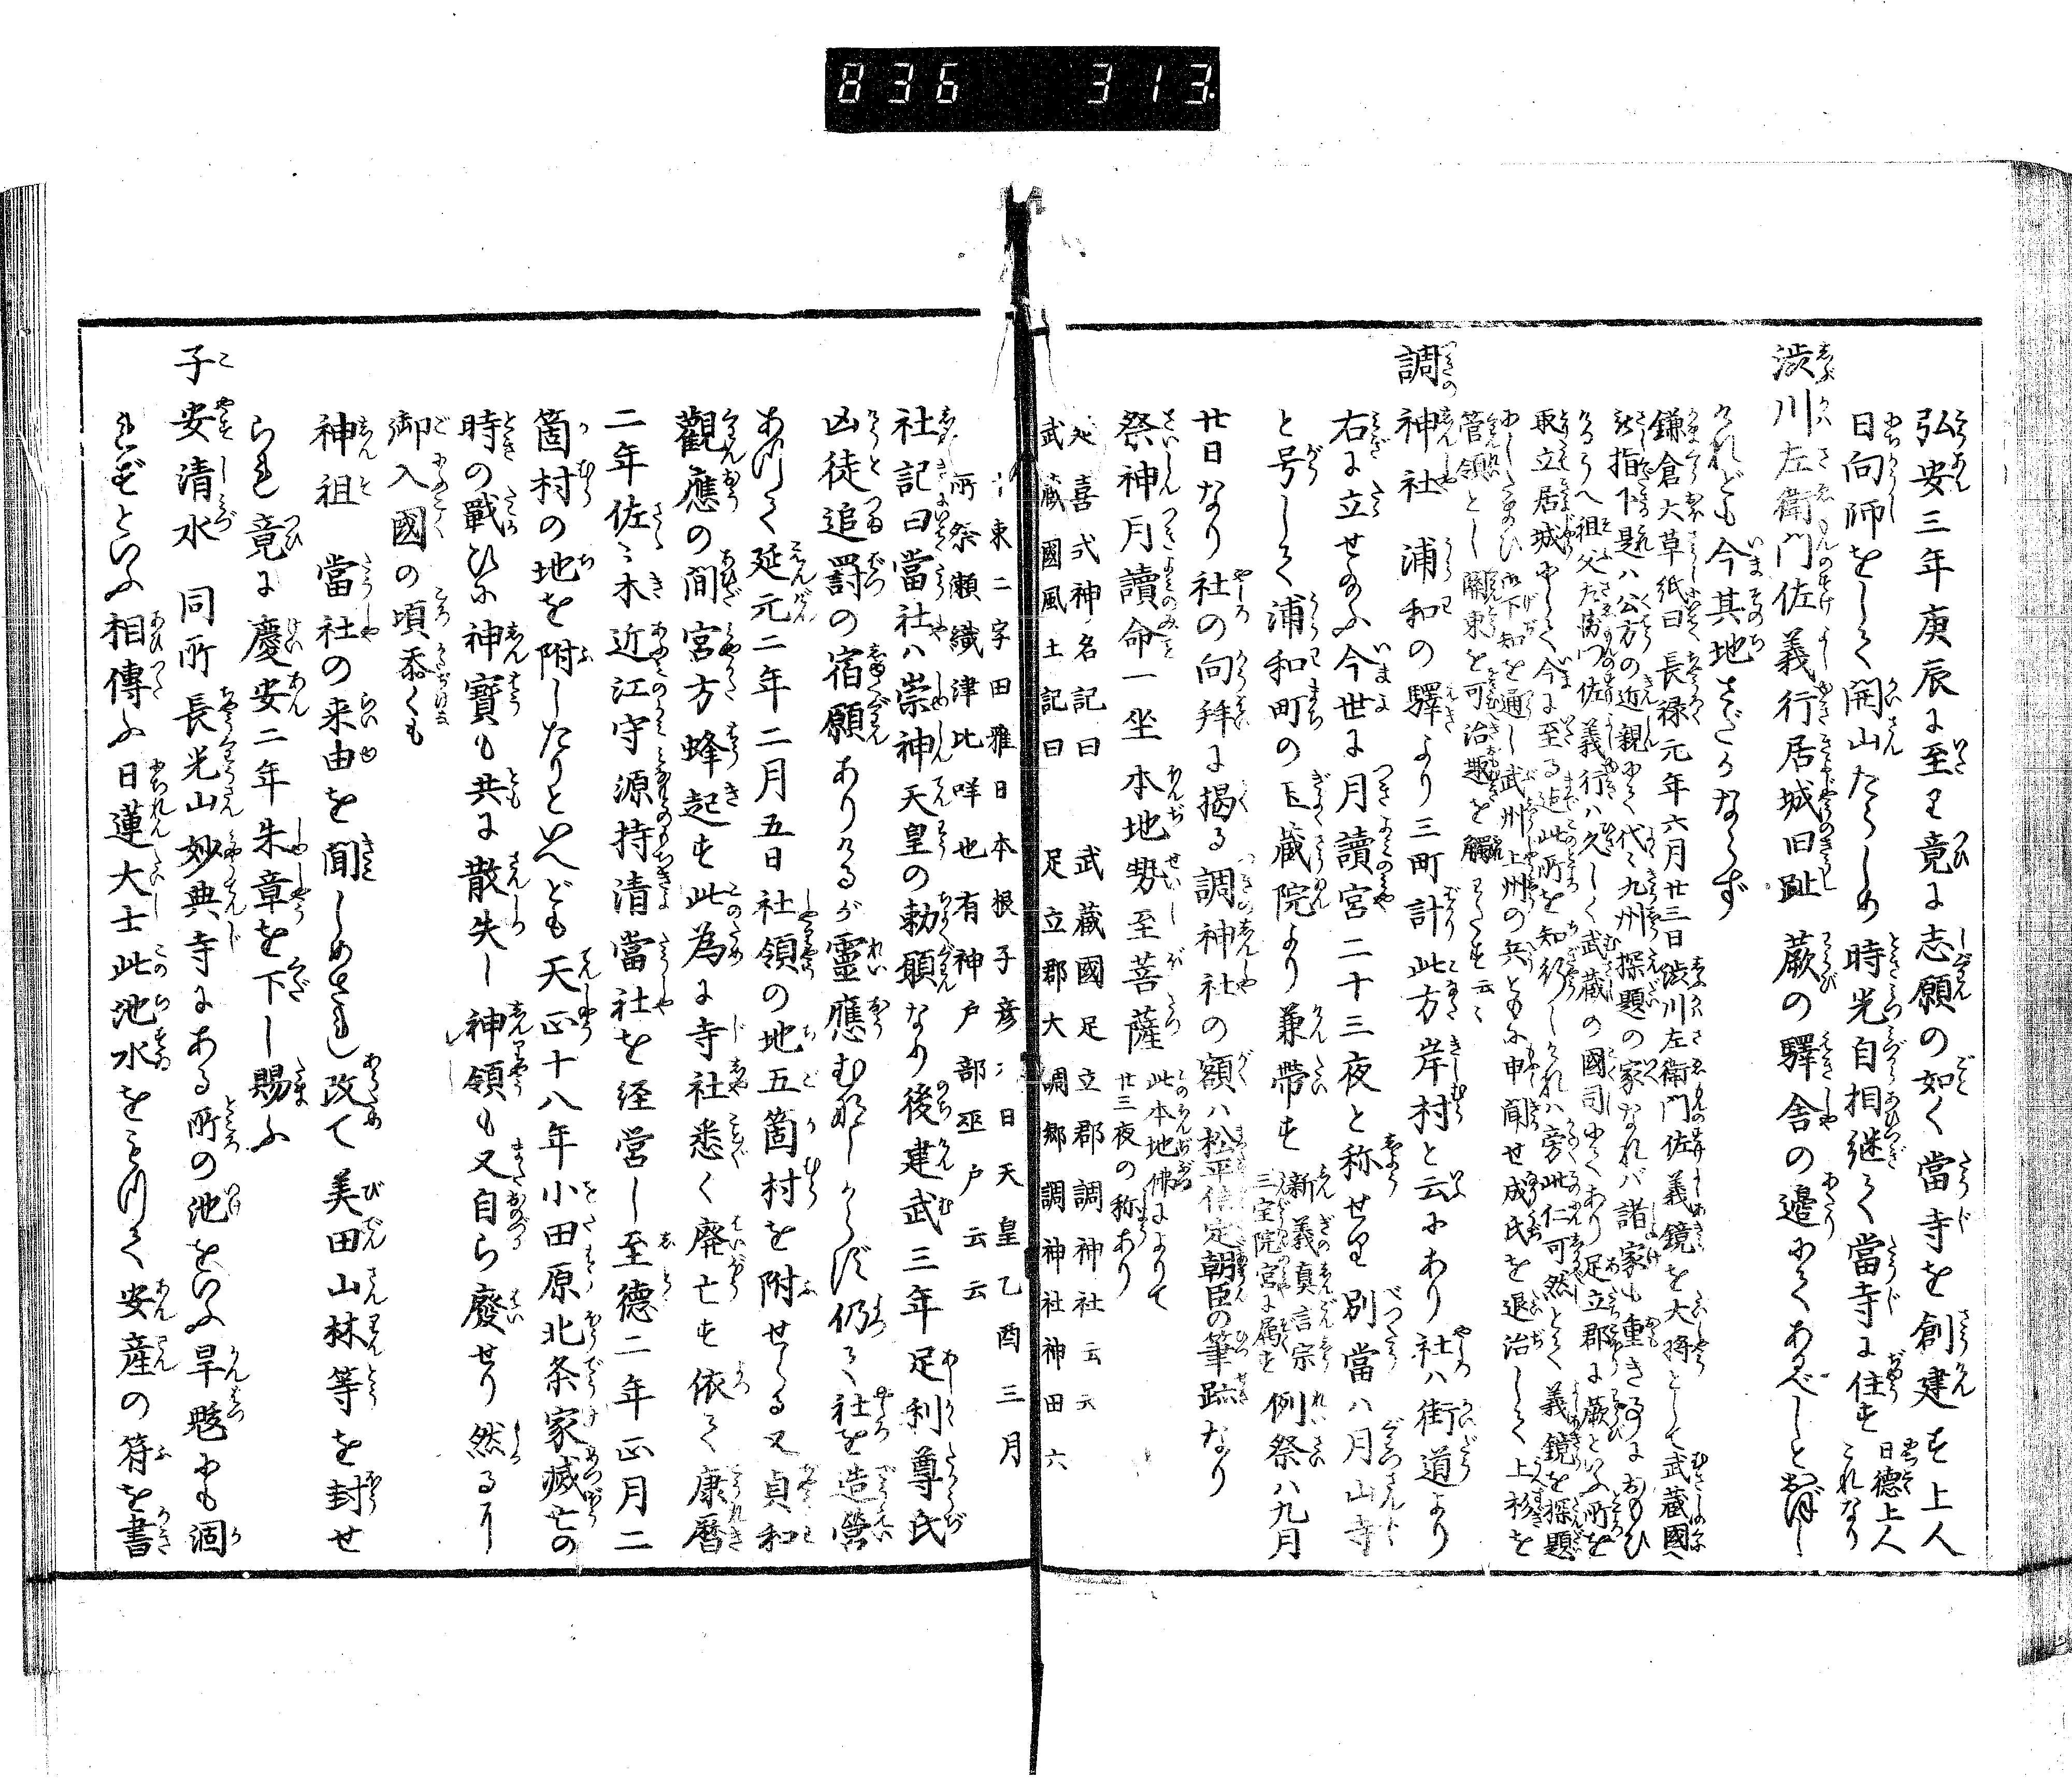 836 313.
弘安三年庚辰に至り竟に志願の如く當寺を創建す上人
日向師をして開山たらしめ時光自相継て當寺に住す 日德上人これなり
渋川左衛門佐義行居城旧趾 蕨の驛舎の邊にてあるべしとおぼし
けれども今其地さだかならず
鎌倉大草紙曰長禄元年六月廿三日渋川左衛門佐義鏡を大将として武蔵國へ
指下さる是ハ公方の近親にて代々九州探題の家なれバ諸家も重き事におもひ
けるうへ祖父左衛門佐義行ハ久しく武蔵の國司にてあり足立郡に蕨といふ所を
取立居城にして今に至る迄此所を知行しけれハ旁此仁可然とて義鏡を探題
にしたまひ御下知を通し武州上州の兵ともに申聞せ成氏を退治して上杉を
管領とし關東を可治趣を觸らる云々
調神社 浦和の驛より三町計此方岸村と云にあり社ハ街道より
右に立せたまふ今世に月讀宮二十三夜と称せり別當ハ月山寺
と号して浦和町の玉蔵院より兼帯す 新義真言宗三宝院宮に属す 例祭ハ九月
廿日なり社の向拜に掲る調神社の額ハ松平信定朝臣の筆跡なり
祭神月讀命一坐本地勢至菩薩 此本地佛によりて廿三夜の称あり
延喜式神名記曰 武蔵國足立郡調神社云云
武蔵國風土記曰 足立郡大調郷調神社神田六
〻東二字田雅日本根子彦〻日天皇乙酉三月
所祭瀬織津比咩也有神戸部巫戸云云
社記曰當社ハ崇神天皇の勅願なり後建武三年足利尊氏
凶徒追罰の宿願ありけるが靈應むなしからず仍て社を造營
あつて延元二年二月五日社領の地五箇村を附せらる又貞和
觀應の間宮方蜂起す此為に寺社悉く廃亡す依て康暦
二年佐々木近江守源持清當社を経営し至德二年正月二
箇村の地を附したりといへども天正十八年小田原北条家滅亡の
時の戰ひに神寶も共に散失し神領も又自ら廢せり然るに
御入國の頃忝くも
神祖 當社の来由を聞しめされ改て美田山林等を封せ
られ竟に慶安二年朱章を下し賜ふ
子安清水 同所長光山妙典寺にある所の池をいふ旱魃にも涸
れずといふ相傳ふ日蓮大士此池水をもつて安産の符を書